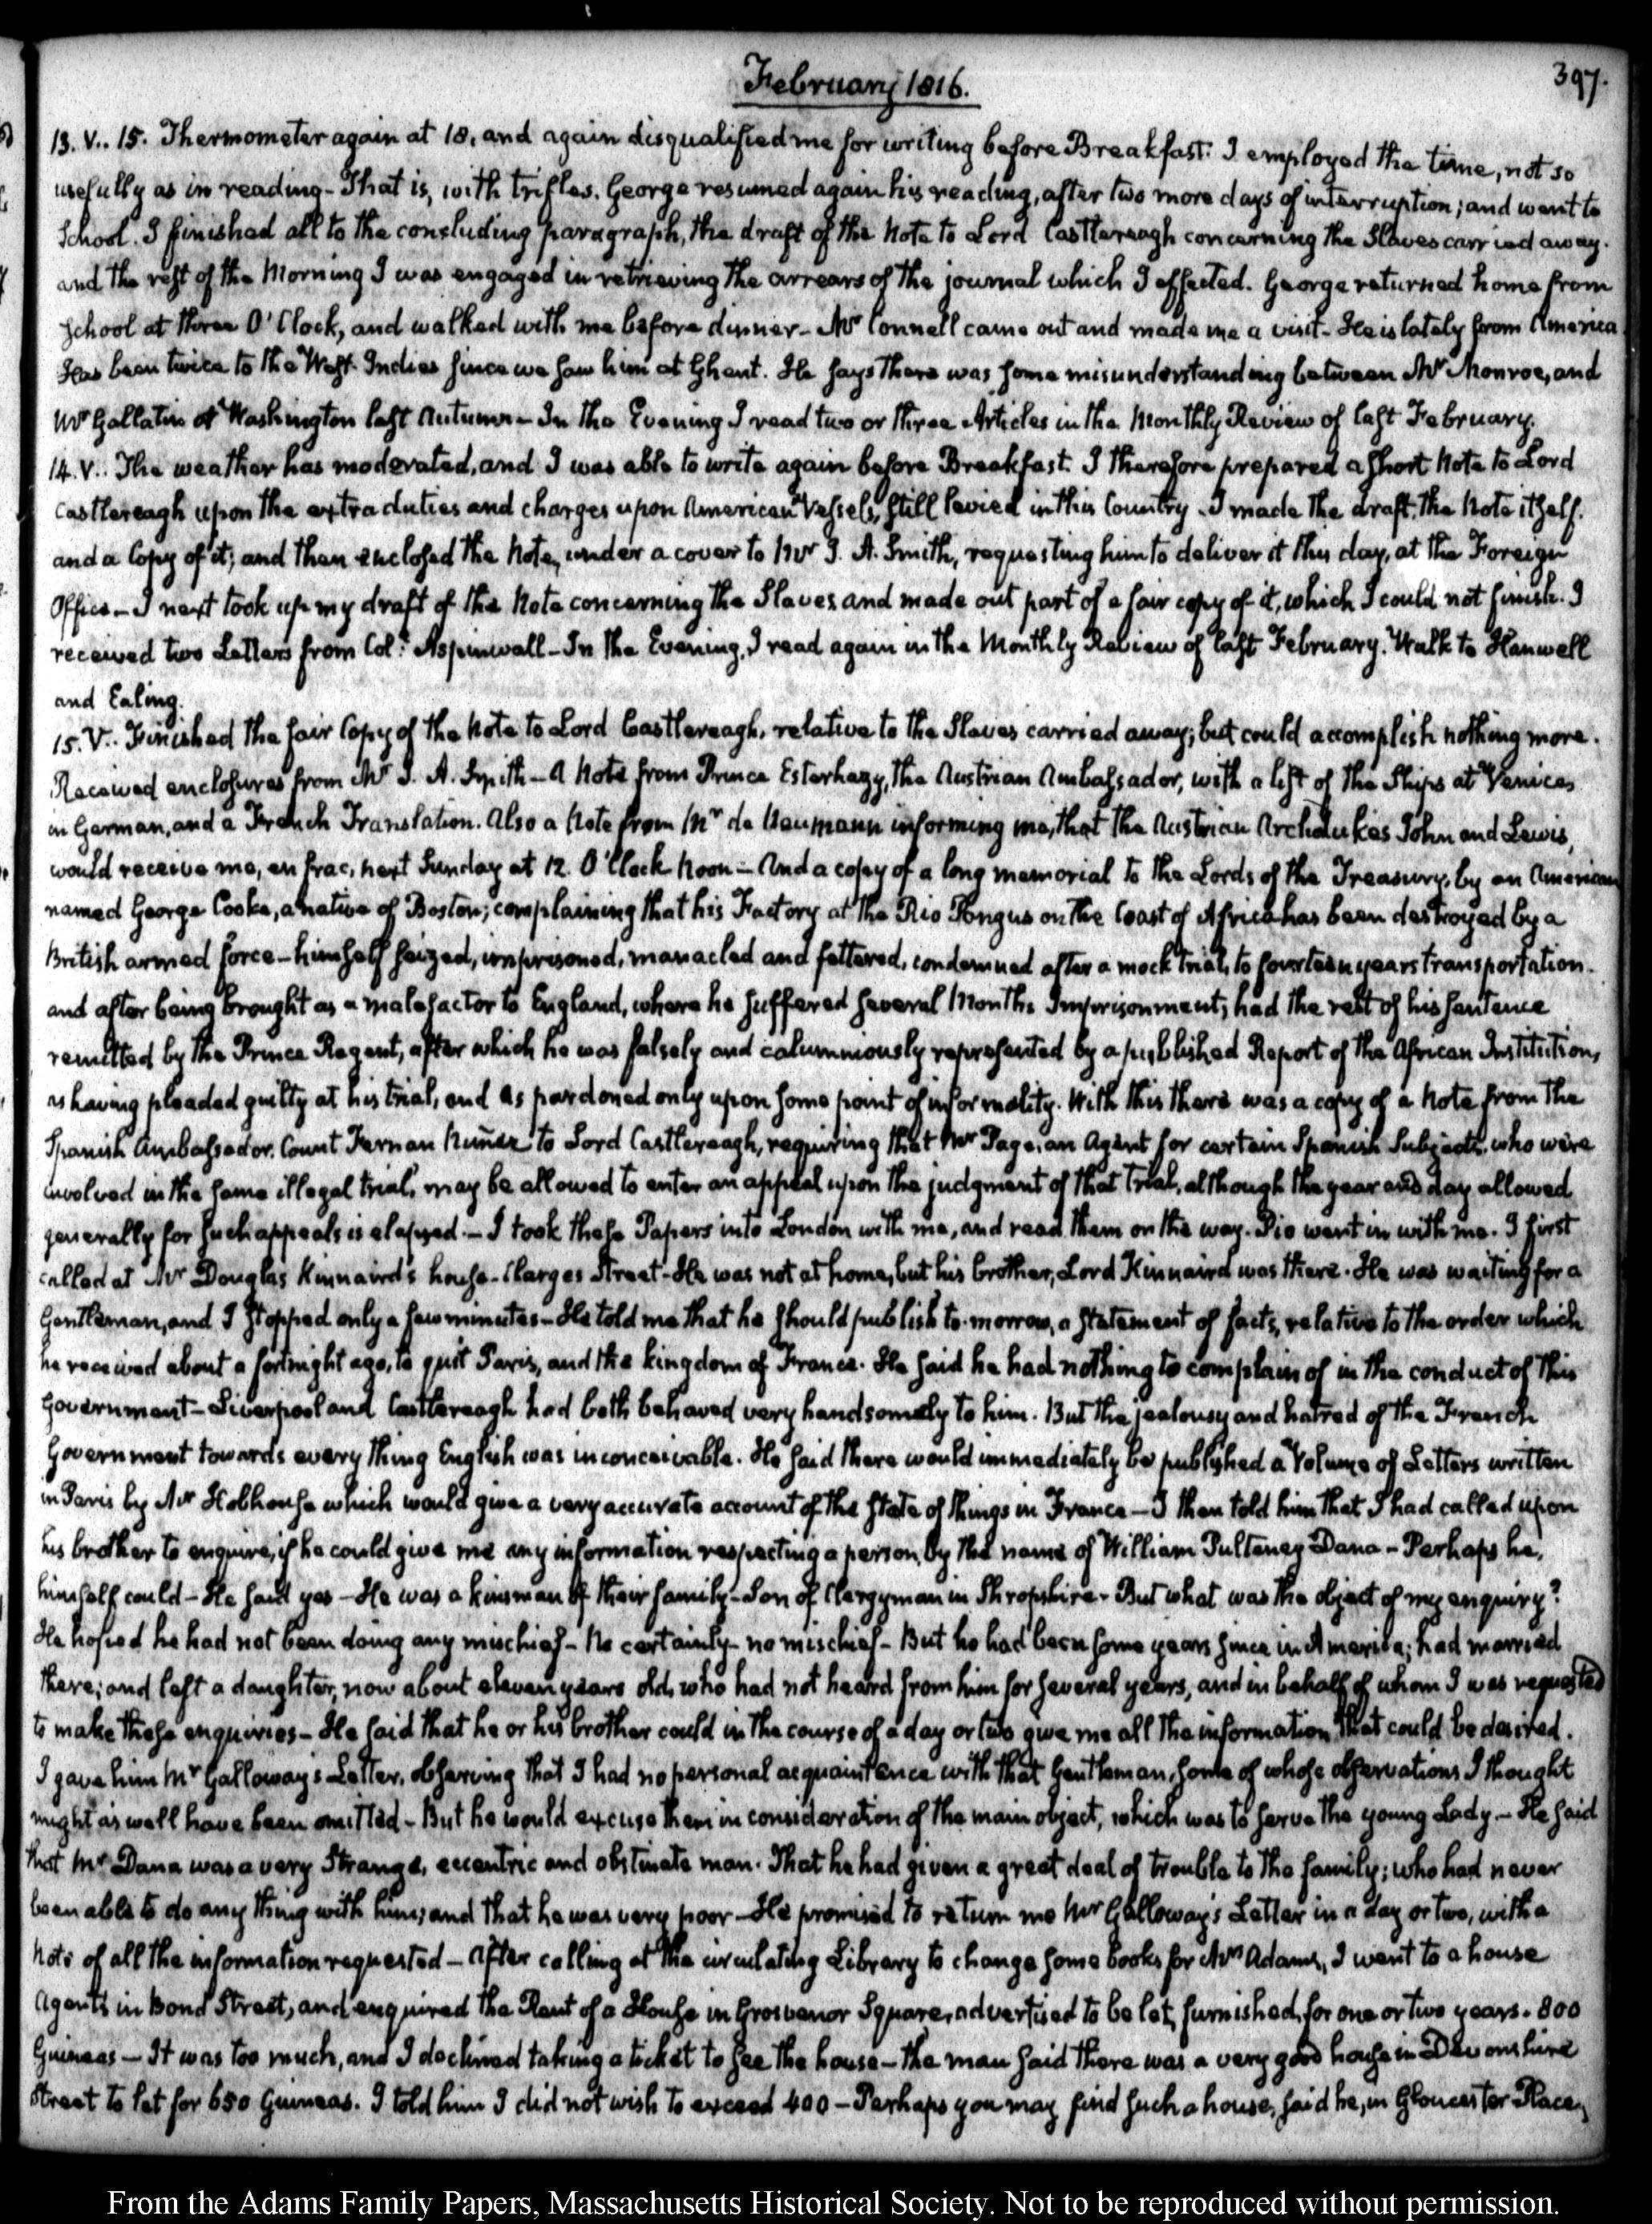 February 1816.
397.
13. V.. 15. Thermometer again at 18, and again disqualified me for writing before Breakfast. I employed the time, not so
usefully as in reading - That is, with trifles. George resumed again his reading, after two more days of interruption; and went to
School. I finished all to the concluding paragraph, the draft of the Note to Lord Castlereagh concerning the Slaves carried away.
and the rest of the Morning I was engaged in retrieving the arrears of the journal which I effected. George returned home from
School at three O'Clock, and walked with me before dinner - Mr Connell came out and made me a visit - He is lately from America
Has been twice to the West-Indies since we saw him at Ghent. He says there was some misunderstanding between Mr Monroe, and
Mr Gallatin at Washington last Autumn - In the Evening I read two or three Articles in the Monthly Review of last February.
14. V.. The weather has moderated, and I was able to write again before Breakfast. I therefore prepared a short Note to Lord
Castlereagh upon the extra duties and charges upon American Vessels, still levied in this Country. I made the draft, the Note itself.
and a Copy of it; and then enclosed the Note, under a cover to Mr J. A. Smith, requesting him to deliver it this day, at the Foreign
Office - I next took up my draft of the Note concerning the Slaves and made out part of a fair copy of it, which I could not finish. I
received two Letters from Col: Aspinwall - In the Evening, I read again in the Monthly Review of last February. Walk to Hanwell
and Ealing.
15. V.. Finished the fair Copy of the Note to Lord Castlereagh, relative to the Slaves carried away; but could accomplish nothing more.
Received enclosures from Mr J. A. Smith - A Note from Prince Esterhazy, the Austrian Ambassador, with a list of the Ships at Venice,
in German, and a French Translation. Also a Note from Mr de Neumann informing me, that the Austrian Archdukes John and Lewis,
would receive me, en frac, next Sunday at 12. O'Clock Noon - And a copy of a long memorial to the Lords of the Treasury, by an American
named George Cooke, a native of Boston; complaining that his Factory at the Rio Pongus on the Coast of Africa has been destroyed by a
British armed force - himself seized, imprisoned, manacled and fettered, condemned after a mock trial, to fourteen years transportation.
and after being brought as a malefactor to England, where he suffered several Months Imprisonment, had the rest of his sentence
remitted by the Prince Regent, after which he was falsely and calumniously represented by a published Report of the African Institution,
as having pleaded guilty at his trial, and as pardoned only upon some point of informality. With this there was a copy of a Note from the
Spanish Ambassador. Count Fernan Nuñez to Lord Castlereagh, requiring that Mr Page, an Agent for certain Spanish Subjects, who were
involved in the same illegal trial, may be allowed to enter an appeal upon the judgment of that trial, although the year and day allowed
generally for such appeals is elapsed. - I took these Papers into London with me, and read them on the way. Pio went in with me. I first
called at Mr Douglas Kinnaird's house - Clarges Street - He was not at home, but his brother, Lord Kinnaird was there. He was waiting for a
Gentleman, and I stopped only a few minutes - He told me that he should publish to-morrow, a statement of facts, relative to the order which
he received about a fortnight ago, to quit Paris, and the kingdom of France. He said he had nothing to complain of in the conduct of this
Government - Liverpool and Castlereagh had both behaved very handsomely to him. But the jealousy and hatred of the French
Government towards every thing English was inconceivable. He said there would immediately be published a Volume of Letters written
in Paris by Mr Hobhouse which would give a very accurate account of the state of things in France - I then told him that I had called upon
his brother to enquire, if he could give me any information respecting a person, by the name of William Pulteney Dana - Perhaps he,
himself could - He said yes - He was a kinsman of their family - Son of Clergyman in Shropshire - But what was the object of my enquiry?
He hoped he had not been doing any mischief - No certainly - no mischief - But he had been some years since in America; had married
there; and left a daughter, now about eleven years old, who had not heard from him for several years, and in behalf of whom I was requested
to make these enquiries - He said that he or his brother could in the course of a day or two give me all the information that could be desired.
I gave him Mr Galloway's Letter, observing that I had no personal acquaintance with that Gentleman, some of whose observations I thought
might as well have been omitted - But he would excuse them in consideration of the main object, which was to serve the young Lady. - He said
that Mr Dana was a very strange, eccentric and obstinate man. That he had given a great deal of trouble to the family; who had never
been able to do any thing with him; and that he was very poor - He promised to return me Mr Galloway's Letter in a day or two, with a
Note of all the information requested - After calling at the circulating Library to change some books for Mrs Adams, I went to a house
Agents in Bond Street, and enquired the Rent of a House in Grosvenor Square, advertised to be let, furnished, for one or two years. 800
Guineas - It was too much, and I declined taking a ticket to see the house - the man said there was a very good house in Devonshire
Street to let for 650 Guineas. I told him I did not wish to exceed 400 - Perhaps you may find such a house, said he, in Gloucester Place,
From the Adams Family Papers, Massachusetts Historical Society. Not to be reproduced without permission.